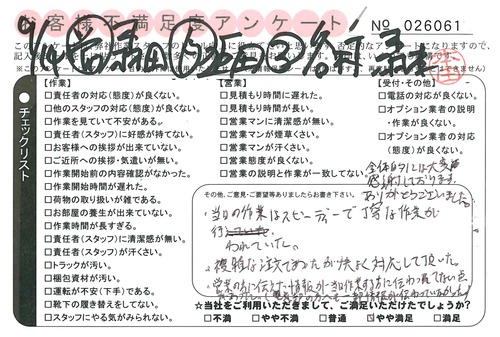 お客様不満足度アンケート
№ 026061
チェックリスト
【作業】
□責任者の対応(態度)が良くない。
□他のスタッフの対応(態度)が良くない。
□作業を見ていて不安がある。
□責任者(スタッフ)に好感が持てない。
□お客様への挨拶が出来ていない。
□ご近所への挨拶・気遣いが無い。
□作業開始前の内容確認がなかった。
□作業開始時間が遅れた。
□荷物の取り扱いが雑である。
□お部屋の養生が出来ていない。
□作業時間が長すぎる。
□責任者(スタッフ)に清潔感が無い。
□責任者(スタッフ)が汗くさい。
□トラックが汚い。
□梱包資材が汚い。
□運転が不安(下手)である。
□靴下の履き替えをしてない。
□スタッフにやる気がみられない。
【営業】
□見積もり時間に遅れた。
□見積もり時間が長い。
□営業マンに清潔感が無い。
□営業マンが煙草くさい。
□営業マンが汗くさい。
□営業態度が良くない。
□営業の説明と作業が一致してない。
【受付・その他】
□電話の対応が良くない。
□オプション業者の説明
・作業が良くない。
□オプション業者の対応
(態度)が良くない。
全体的には大変
感謝しております。
ありがとうございました。
その他、ご意見・ご要望等ありましたらお書き下さい。
・当日の作業はスピーディーで丁寧な作業が
行
われていた。
・複雑な注文であったが快よく対応して頂いた。
・営業の方に伝えた情報が当日作業する方に伝わってない点
★当社をご利用いただきまして、ご満足いただけたでしょうか?
□不満 □やや不満 □普通 □やや満足 □満足